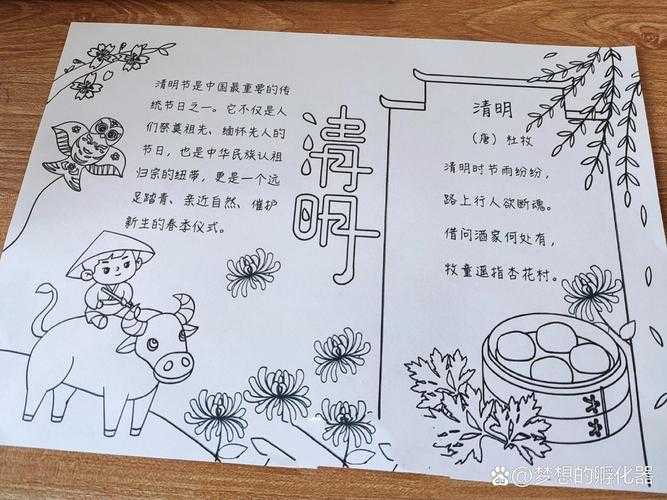 清明节是中国最重要的传
统节日之一。它不仅是人
们祭奠祖先、缅怀先人的
节日，也是中华民族认祖
归宗的纽带，更是一个远
足踏青、亲近自然、催护
新生的春季仪式。
清明
清明
（唐）杜牧
清明时节雨纷纷，
路上行人欲断魂。
借问酒家何处有，
牧童遥指杏花村。
梦想的孵化器